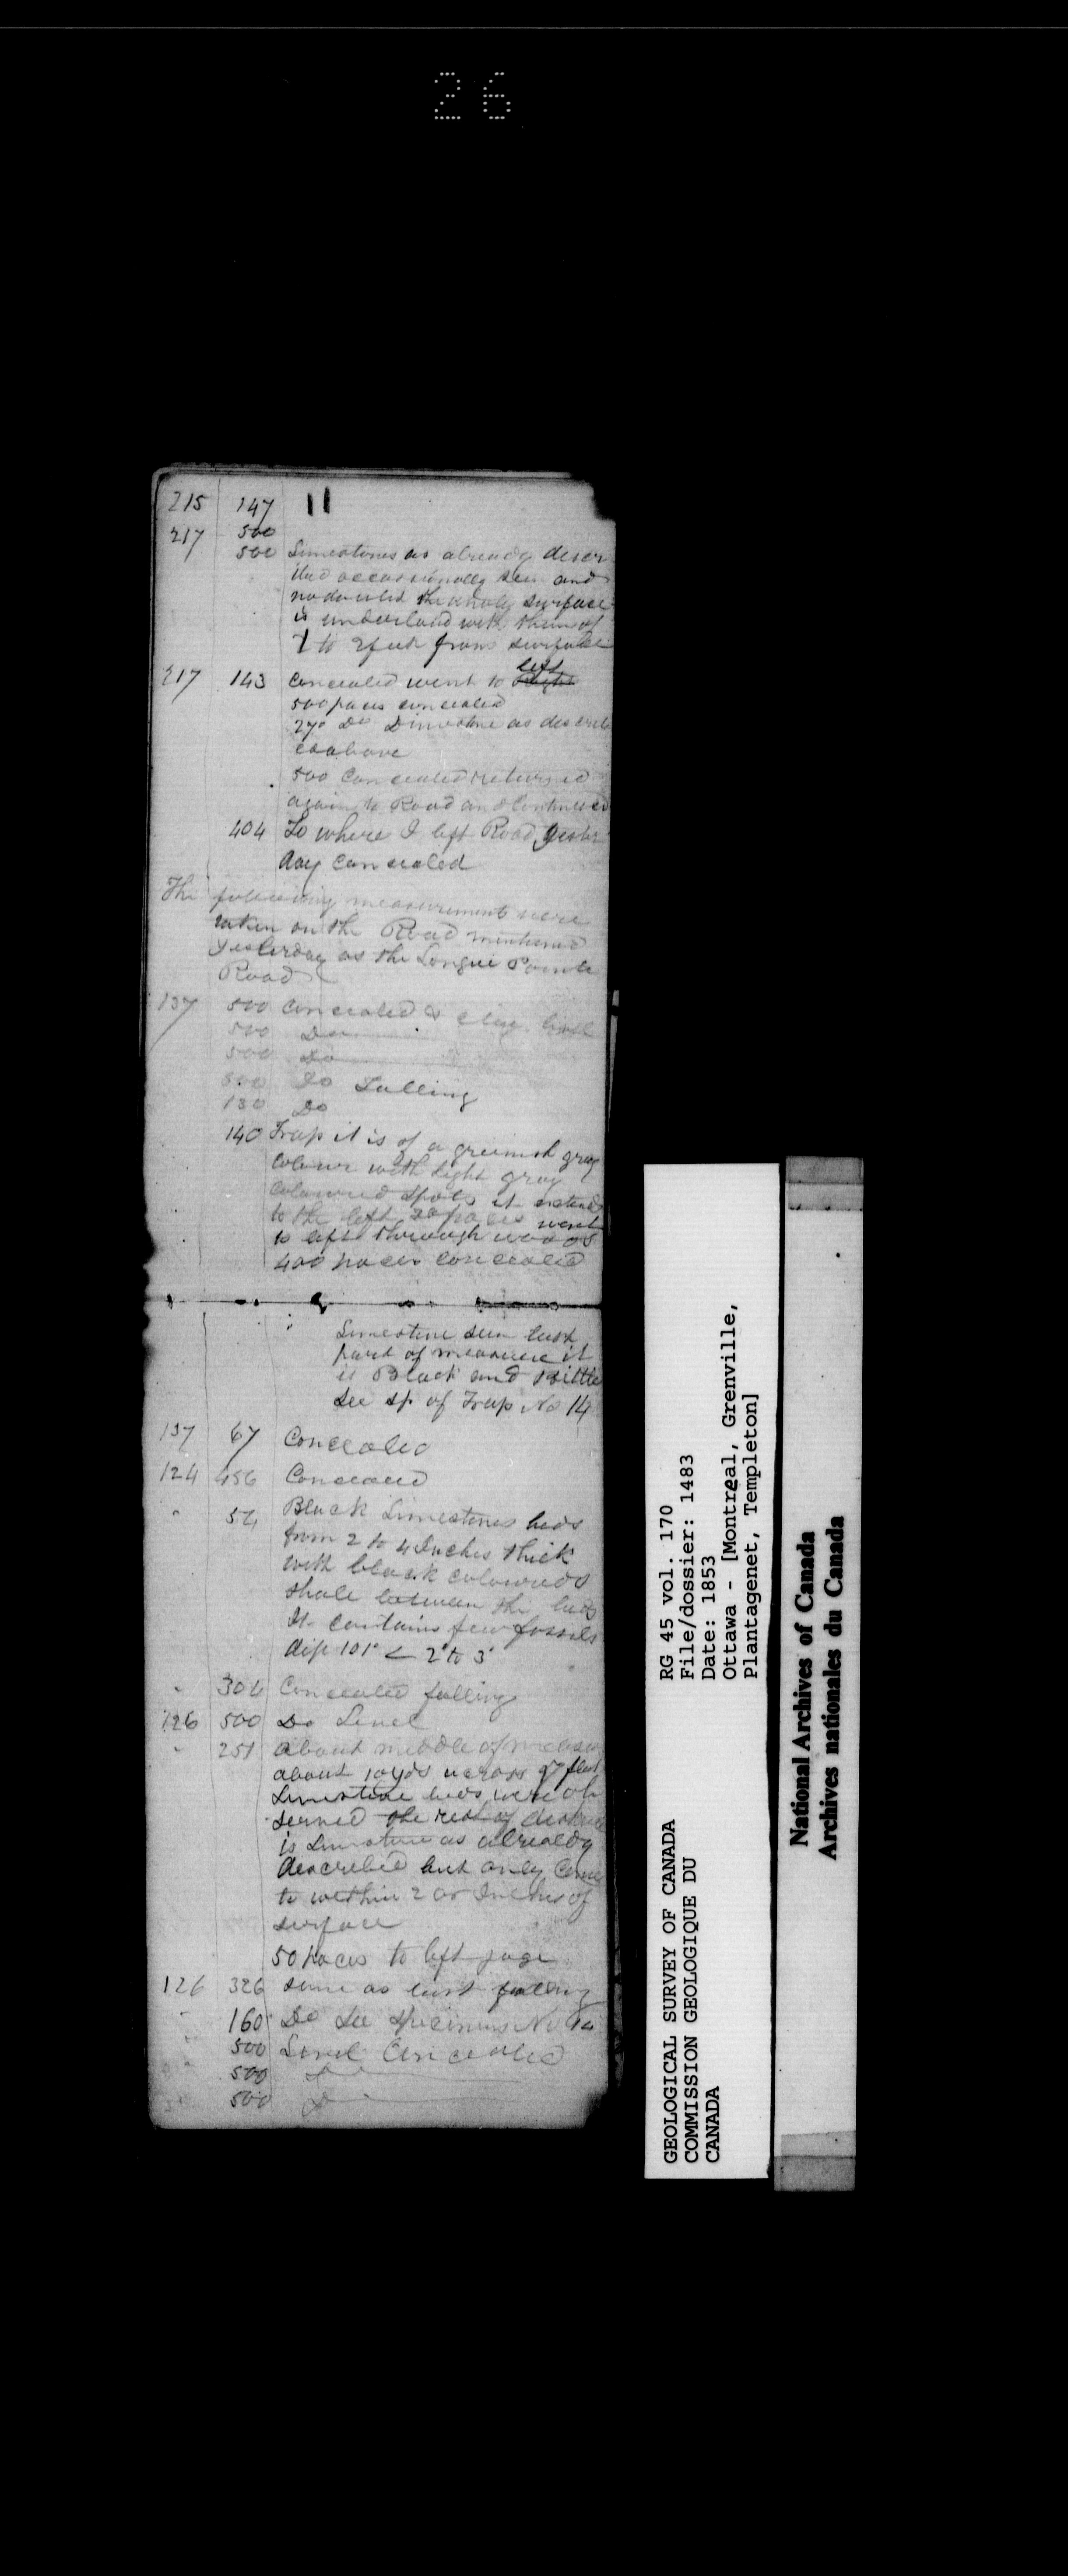 26
215 147 11
217 500
500 Limestones as already descr
ibed occassionally seen and
no doubt the whole surface
is underlaid with them at
1 to 2 feet from surface
217 143 Concealed went to left
500 paces concealed
270 Do Limestone as describ
ed above
500 Concealed returned
again to Road and Continued
404 To where I left Road yester
day Concealed
The following measurements were
taken on the Road mentioned
yesterday as the Longue Pointe
Road
137 500 Concealed & clay
500 Do
500 Do
500 Do Falling
130 Do
140 Trap it is of a greenish gray
Colour with light gray
coloured spots it extends
to the left 20 paces went
to left through woods
400 paces concealed
Limestone seen last
part of measure it
is Black and Brittle
See sp. of Trap No 14
137 67 Concealed
124 456 Concealed
" 54 Black Limestones beds
from 2 to 4 Inches thick
with black coloured
shale between the beds
It contains few fossils
dip 101° < 2° to 3°
" 304 Concealed falling
126 500 Do Level
" 251 About middle of measure
about 10 yds across of flat
Limestone beds were ob
served the rest of distance
is Limestone as already
described but only Come
to within 2 or Inches of
surface
50 paces to left
126 326 same as last falling
" 160 Do See Specimens No
" 500 Level Concealed
" 500 Do
500 Do
GEOLOGICAL SURVEY OF CANADA
COMMISSION GEOLOGIQUE DU
CANADA
RG 45 vol. 170
File/dossier: 1483
Date: 1853
Ottawa - [Montreal, Grenville,
Plantagenet, Templeton]
National Archives of Canada
Archives nationales du Canada